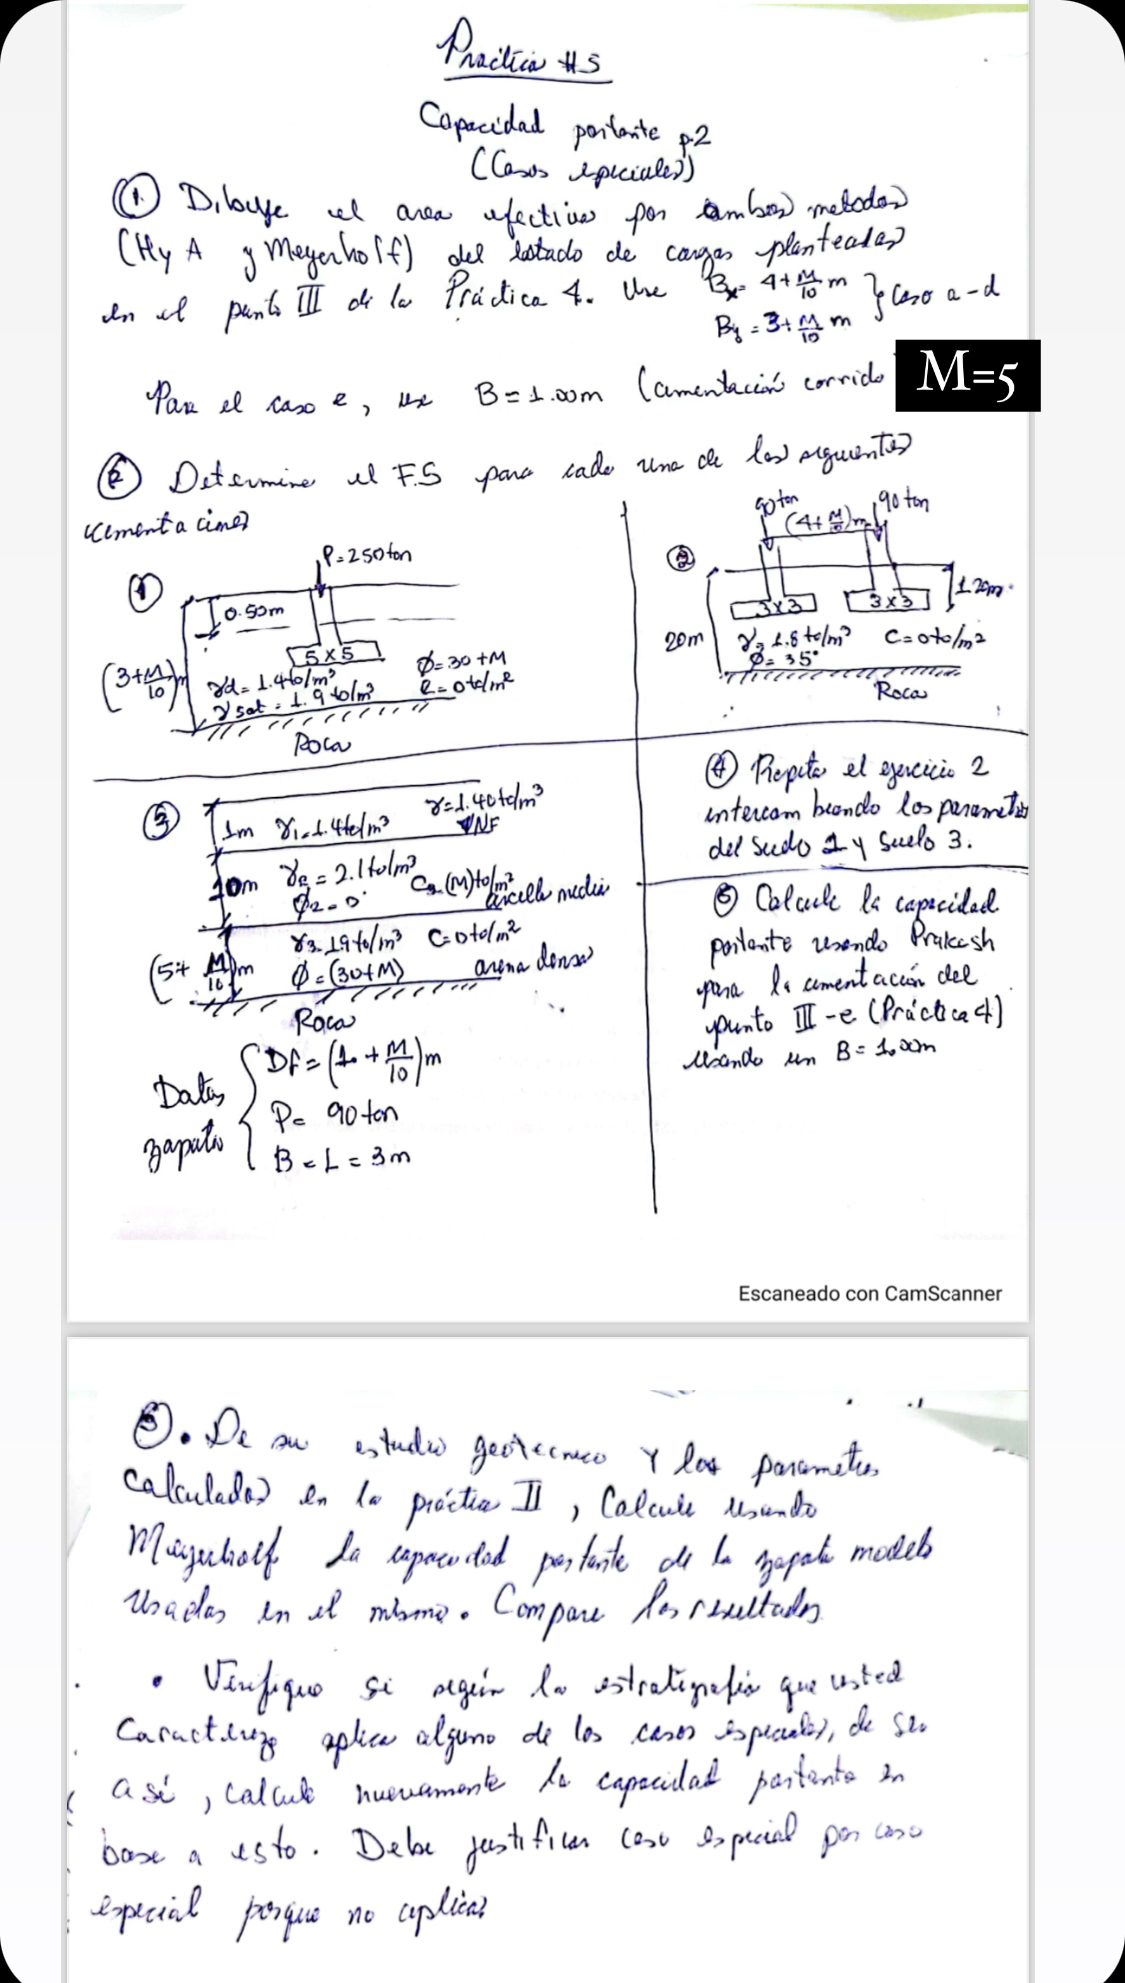 Práctica #5
Capacidad portante p.2
(Casos especiales)
1. Dibuje el area efectiva por ambos metodos
(H y A y Meyerholf) del estado de cargas planteadas
en el punto III de la Práctica 4. Use Bx = 4+M/10 m } Caso a-d
By = 3+M/10 m
M=5
Para el caso e, use B=1.00m (cimentación corrida
2 Determine el F.S para cada una de las siguientes
cimentaciones
1
P=250ton
0.50m
5x5
(3+M/10)m
γd=1.4to/m³
γsat=1.9to/m³
Φ=30+M
C=0to/m²
Roca
2
90ton
(4+M/10)m
90ton
1.20m
3x3
3x3
20m
γ=1.8to/m³ C=0to/m²
Φ=35°
Roca
3
1m γ1=1.4to/m³ γ=1.40to/m³
NF
10m γ2=2.1to/m³ C=(M)to/m²
Φ2=0° arcilla media
(5+M/10)m γ3=1.9to/m³ C=0to/m²
Φ=(30+M) arena densa
Roca
Datos zapata { Df=(1.+M/10)m
P= 90ton
B=L=3m
4 Repita el ejercicio 2
intercambeando los parametros
del Suelo 1 y Suelo 3.
5 Calcule la capacidad
portante usando Prakash
para la cimentación del
punto III-e (Práctica 4)
usando un B=1.00m
Escaneado con CamScanner
3. De su estudio geotecnico y los parametros
calculados en la práctica II, Calcule usando
Mayerholf la capacidad portante de la zapata modelo
Usadas en el mismo. Compare los resultados
• Verifique si según la estratigrafia que usted
Caracterizo aplica alguno de los casos especiales, de ser
asi, calcule nuevamente la capacidad portante en
base a esto. Debe justificar caso especial por caso
especial porque no aplica